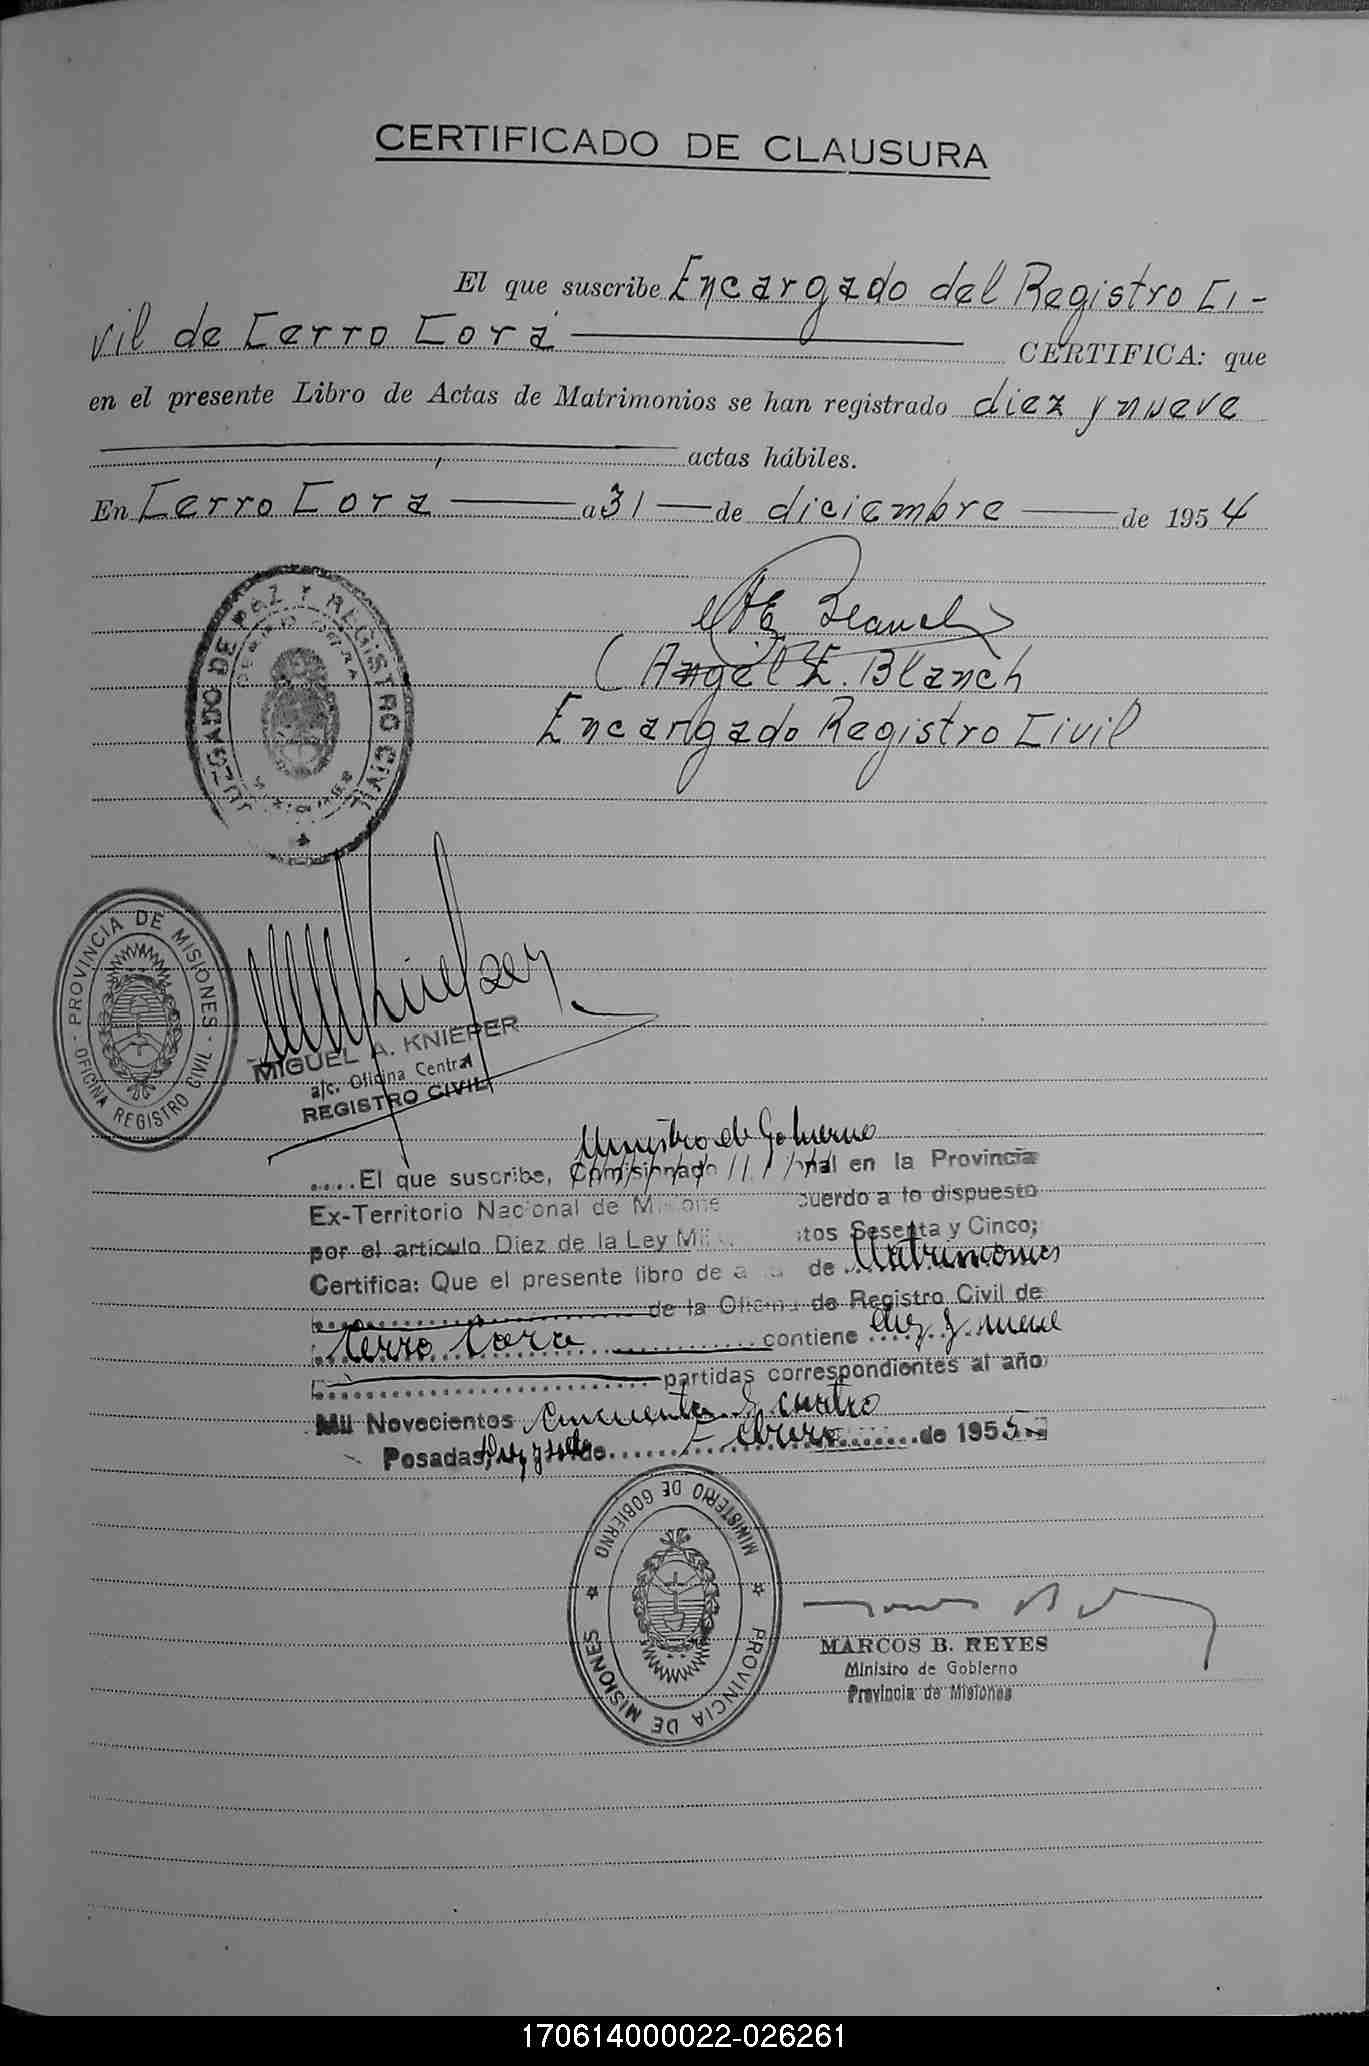 CERTIFICADO DE CLAUSURA
El que suscribe Encargado del Registro Ci-
vil de Cerro Corá CERTIFICA: que
en el presente Libro de Actas de Matrimonios se han registrado diez y nueve
actas hábiles.
En Cerro Corá a 31 de diciembre de 1954
JUZGADO DE PAZ Y REGISTRO CIVIL
CERRO CORA
MISIONES
(Angel E. Blanch
Encargado Registro Civil
PROVINCIA DE MISIONES
OFICINA REGISTRO CIVIL
MIGUEL A. KNIEPER
a/c. Oficina Central
REGISTRO CIVIL
Ministro de Gobierno
.....El que suscribe, Comisionado en la Provincia
Ex-Territorio Nacional de Misiones cuerdo a lo dispuesto
por el artículo Diez de la Ley Mil tos Sesenta y Cinco;
Certifica: Que el presente libro de de Matrimonios
de la Oficina de Registro Civil de
Cerro Corá contiene diez y nueve
partidas correspondientes al año
Mil Novecientos Cincuenta y cuatro
Posadas, de Febrero de 1955
MINISTERIO DE GOBIERNO
PROVINCIA DE MISIONES
MARCOS B. REYES
Ministro de Gobierno
Provincia de Misiones
170614000022-026261